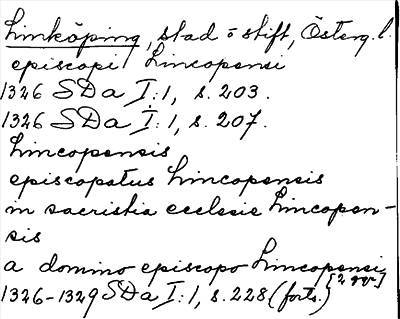 Linköping, stad o stift, Österg. l.
episcopi Lincopensi
1326 SDa I:1, s. 203.
1326 SDa I:1, s. 207.
Lincopensis
episcopatus Lincopensis
in sacristia ecclesie Lincopen-
sis
a domino episcopo Lincopensi
[2 ggr]
1326-1329 SDa I:1, s. 228 (forts.)